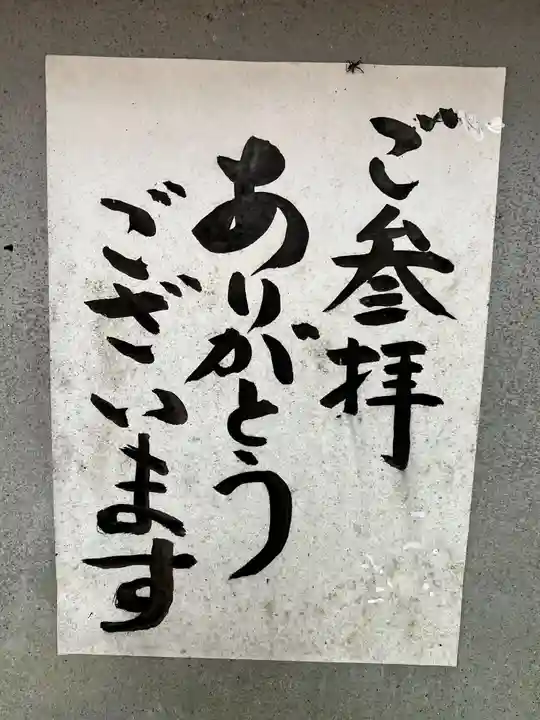 ご参拝
ありがとう
ございます